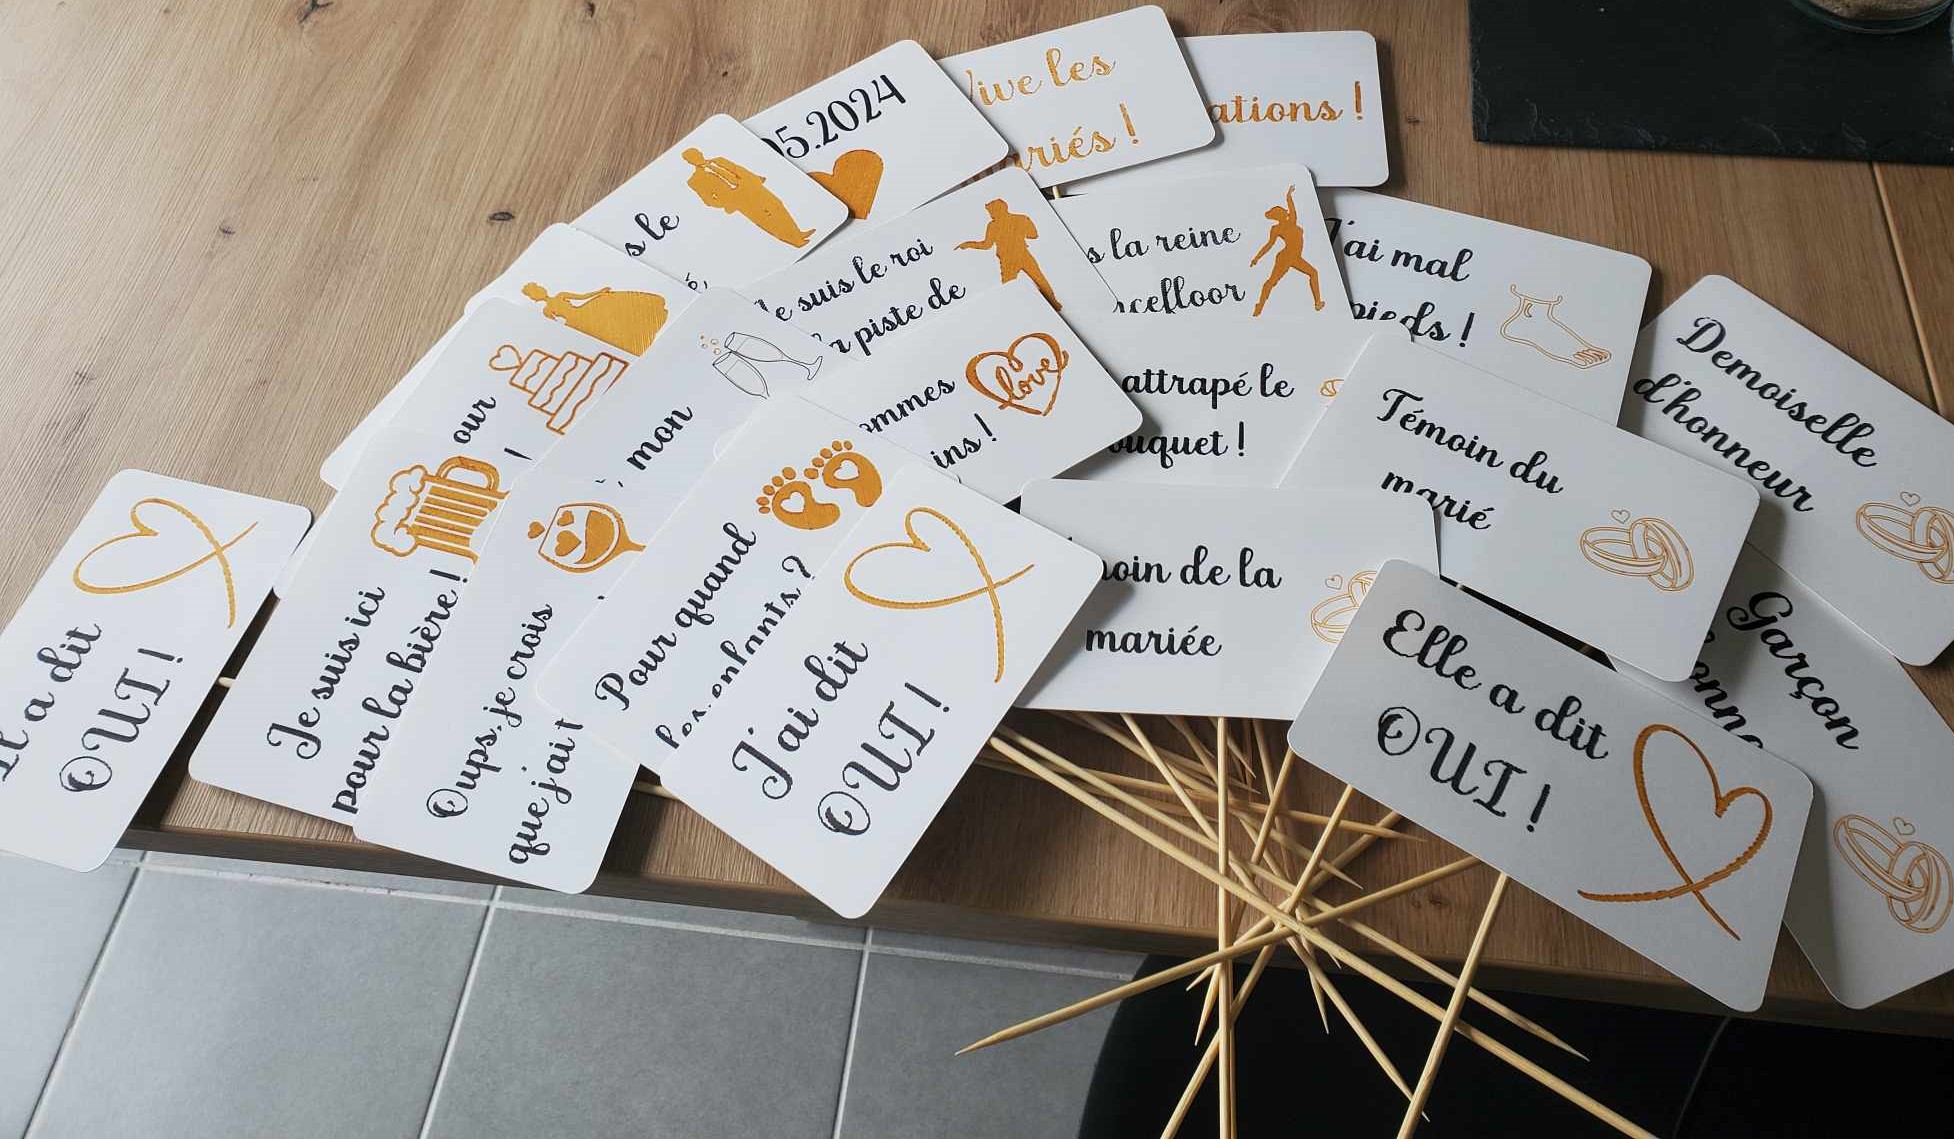 05.2024
Vive les
ations !
s le
Je suis le roi
la piste de
s la reine
J'ai mal
pieds !
Demoiselle
d'honneur
our
!
, mon
ommes
ins !
love
attrapé le
ouquet !
Témoin du
marié
oin de la
mariée
Garçon
Il a dit
OUI !
Je suis ici
pour la bière !
Oups, je crois
que j'ai
Pour quand
les enfants ?
J'ai dit
OUI !
Elle a dit
OUI !